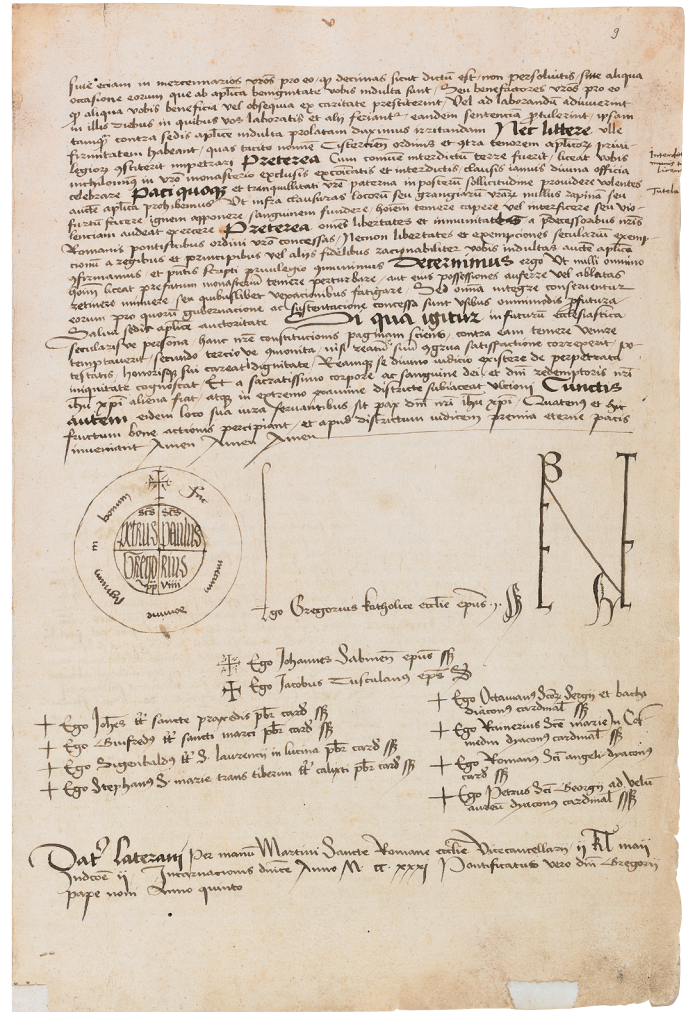 9
siue eciam in mercennarios vros pro eo qp decimas sicut dictū est non persoluitis siue aliqua
occasione eorum que ab aplica benignitate vobis indulta sunt Seu benefactores vros pro eo
qp aliqua vobis beneficia vel obsequia ex caritate prestiterint Vel ad laborandū adiuuerint
in illis diebus in quibus vos laboratis et alij feriant eandem sentencia ptulerint ipsam
tamqz contra sedis aplice indulta prolatam duximus irritandam Nec littere ulle
firmitatem habeant quas tacito nomine Cistercien ordinis et ɔtra tenorem aplicorz priui
legiorz ɔstiterit impetrari Preterea Cum comune interdictū terre fuerit liceat vobis
nichilominus in vro monasterio exclusis excoicatis et interdictis clausis ianuis diuina officia
celebrare Paci quoqz et tranquillitati vre paterna in posterū sollicitudine prouidere volentes
aucte aplica prohibemus Vt infra clausuras locorū seu grangiarū vrarz nullus rapina seu
furtū facere ignem apponere sanguinem fundere hoiem temere capere vel interficere seu vio
lenciam audeat exercere Preterea omes libertates et immunitates a pdecessoribus nris
Romanis pontificibus ordini vro concessas Necnon libertates et exempciones secularium exemp
cionū a regibus et principibus vel alijs fidelibus racionabiliter vobis indultas aucte aplica
ɔfirmamus et pntis scripti priuilegio ɔmunimus Decernimus ergo Vt nulli omnino
hoim liceat prefatum monasteriū temere perturbare aut eius possessiones auferre vel ablatas
retinere minuere seu quibuslibet vexacionibus fatigare Sed omia integre conseruentur
eorum pro quorū gubernacione ac sustentacione concessa sunt vsibus omnimodis pfutura
Salua sedis aplice auctoritate Si qua igitur in futurū ecclesiastica
secularisue persona hanc nre constitucionis paginam sciens contra eam temere venire
temptauerit secundo tercioue ɔmonita nisi reatū suū ɔgrua satisfactione correxerit po
testatis honorisqz sui careat dignitate Reamqz se diuino iudicio existere de perpetrata
iniquitate cognoscat Et a sacratissimo corpore ac sanguine dei et dni redemptoris nri
ihu xpi aliena fiat atqz in extremo examine districte subiaceat vlcioni Cunctis
autem eidem loco sua iura seruantibus sit pax dni nri ihu xpi Quatenus et hic
fructum bone actionis percipiant et apud districtum iudicem premia eterne pacis
inueniant Amen Amen Amen
Tutela
Fac mecum domine signum in bonum
scs scs
petrus paulus
Gregorius
pp viiii
Ego Gregorius katholice ecclie epus
Ego Johannes Sabinen epus
Ego Jacobus Tusculanus eps
Ego Johes tt sancte praxedis pbr card
Ego Guifredus tt sancti marci pbr card
Ego Sigenbaldus tt S. laurencii in lucina pbr card
Ego Stephanus S. marie trans tiberim tt calixti pbr card
Ego Octauianus scorz Sergii et bachi
diaconus cardinal
Ego Rainerius sce marie in Cos
medin dyaconus cardinal
Ego Romanus sci angeli dyaconus
card
Ego Petrus sci Georgii ad velū
aureū dyaconus cardinal
Dat Laterani Per manū Martini Sancte Romane ecclie Vicecancellarii ij kl maii
Indcoe ii Incarnacionis dnice Anno M cc xxxi Pontificatus vero dni Gregorii
pape noni Anno quinto